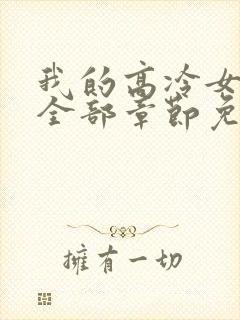 我的高冷女
全部章节免
擁有一切